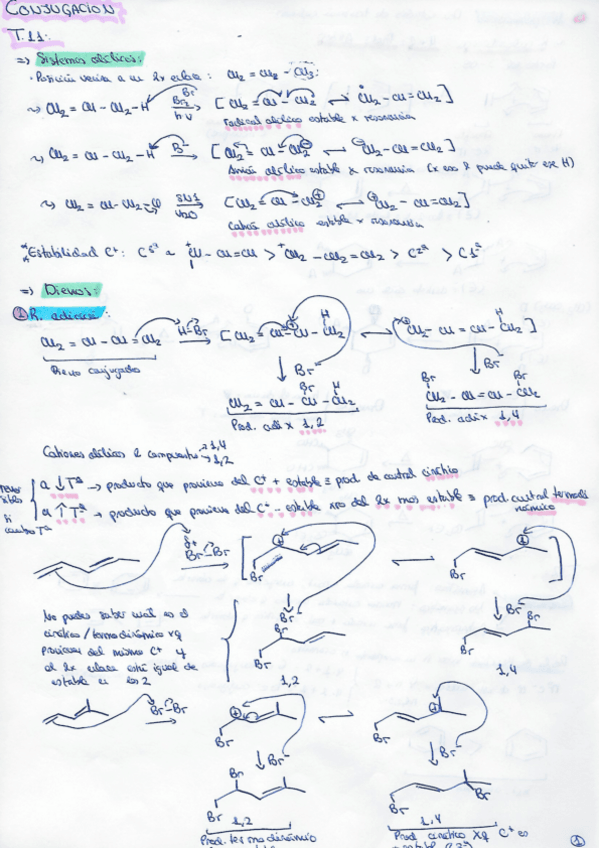 CONJUGACION
T.11:
=> Sistemas alílicos:
· Posición vecina a un 2x enlace: CH2 = CH2 - CH3:
CH2 = CH - CH2 - H Br Br2 hν [CH2 = CH - CH2 CH2 - CH = CH2]
Radical alílico estable x resonancia
CH2 = CH - CH2 - H B⁻ [CH2 = CH - CH2 ⊖ CH2 - CH = CH2]
Anión alílico estable x resonancia (x eso B puede quitar ese H)
CH2 = CH - CH2 SN1 H2O [CH2 = CH - CH2 ⊕ CH2 - CH = CH2]
Catión alílico estable x resonancia
Estabilidad C+: C3ª ~ +CH - CH = CH > +CH2 - CH2 = CH2 > C2ª > C1ª
=> Dienos:
① R. adición:
CH2 = CH - CH = CH2 H-Br [CH2 = CH ⊕ CH - CH2 H CH2 - CH = CH - CH2 H]
Dieno conjugado
Br⁻ Br⁻
CH2 = CH - CH - CH2 Br H CH2 - CH = CH - CH2 Br
Prod. adi x 1,2
Prod. adi x 1,4
Cationes alílicos 2 compuestos 1,4
1,2
a ↓ Tª → producto que proviene del C+ + estable ≡ prod. de control cinético
a ↑ Tª → producto que proviene del C+ - estable xro del 2x más estable ≡ prod. control termodinámico
si cambio Tª
δ+ Br-Br
Br Br
Br⁻ Br⁻
No puedes saber cuál es el
cinético / termodinámico xq
provienen del mismo C+ y
el 2x enlace está igual de
estable en los 2
Br Br
Br Br
1,2
1,4
Br-Br
Br Br
Br⁻ Br⁻
Br Br
Br Br
1,2
1,4
Prod. termodinámico
Prod. cinético xq C+ es
①